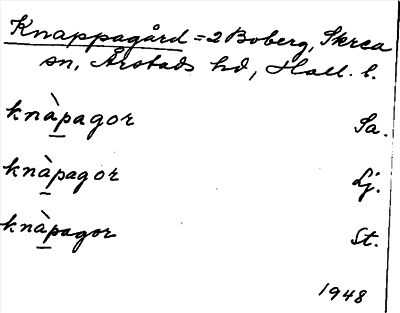 Knappagård = 2 Boberg, Skrea
sn, Årstads hd, Hall. l.
knàpagor Sa.
knàpagor Lj.
knàpagor St.
1948